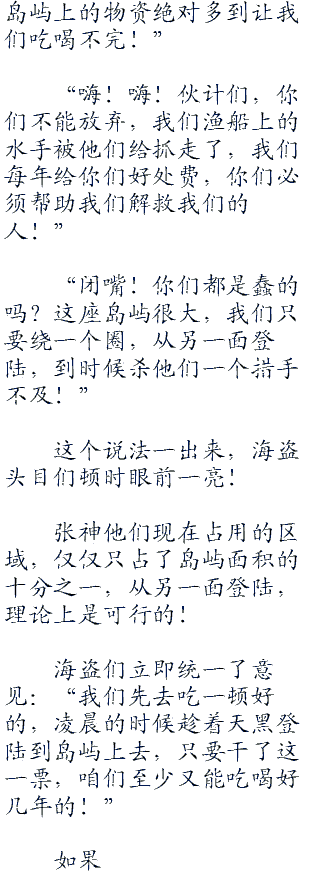 岛屿上的物资绝对多到让我
们吃喝不完！”
“嗨！嗨！伙计们，你
们不能放弃，我们渔船上的
水手被他们给抓走了，我们
每年给你们好处费，你们必
须帮助我们解救我们的
人！”
“闭嘴！你们都是蠢的
吗？这座岛屿很大，我们只
要绕一个圈，从另一面登
陆，到时候杀他们一个措手
不及！”
这个说法一出来，海盗
头目们顿时眼前一亮！
张神他们现在占用的区
域，仅仅只占了岛屿面积的
十分之一，从另一面登陆，
理论上是可行的！
海盗们立即统一了意
见：“我们先去吃一顿好
的，凌晨的时候趁着天黑登
陆到岛屿上去，只要干了这
一票，咱们至少又能吃喝好
几年的！”
如果